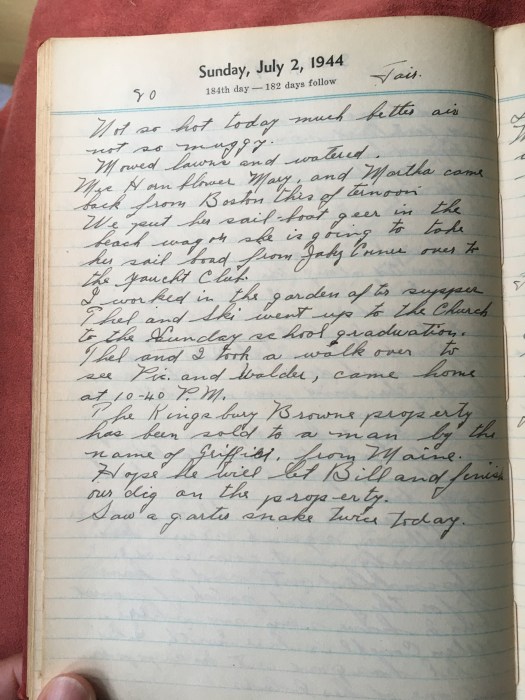 Sunday, July 2, 1944
184th day — 182 days follow
80
Fair.
Not so hot today much better air
not so muggy.
Mowed lawns and watered
Mye Hornblower Mary, and Martha came
back from Boston this afternoon
We put her sail-boat geer in the
beach wagon she is going to take
her sail boad from Corner over to
the Yaucht Club.
I worked in the garden after supper
Thel and Ski went up to the Church
to the Sunday school graduation.
Thel and I took a walk over to
see Pic. and Walder, came home
at 10-40 P.M.
The Kingsbury Browne property
has been sold to a man by the
name of from Maine.
Hope he will let Bill and finish
our dig on the property.
Saw a garter snake twice today.